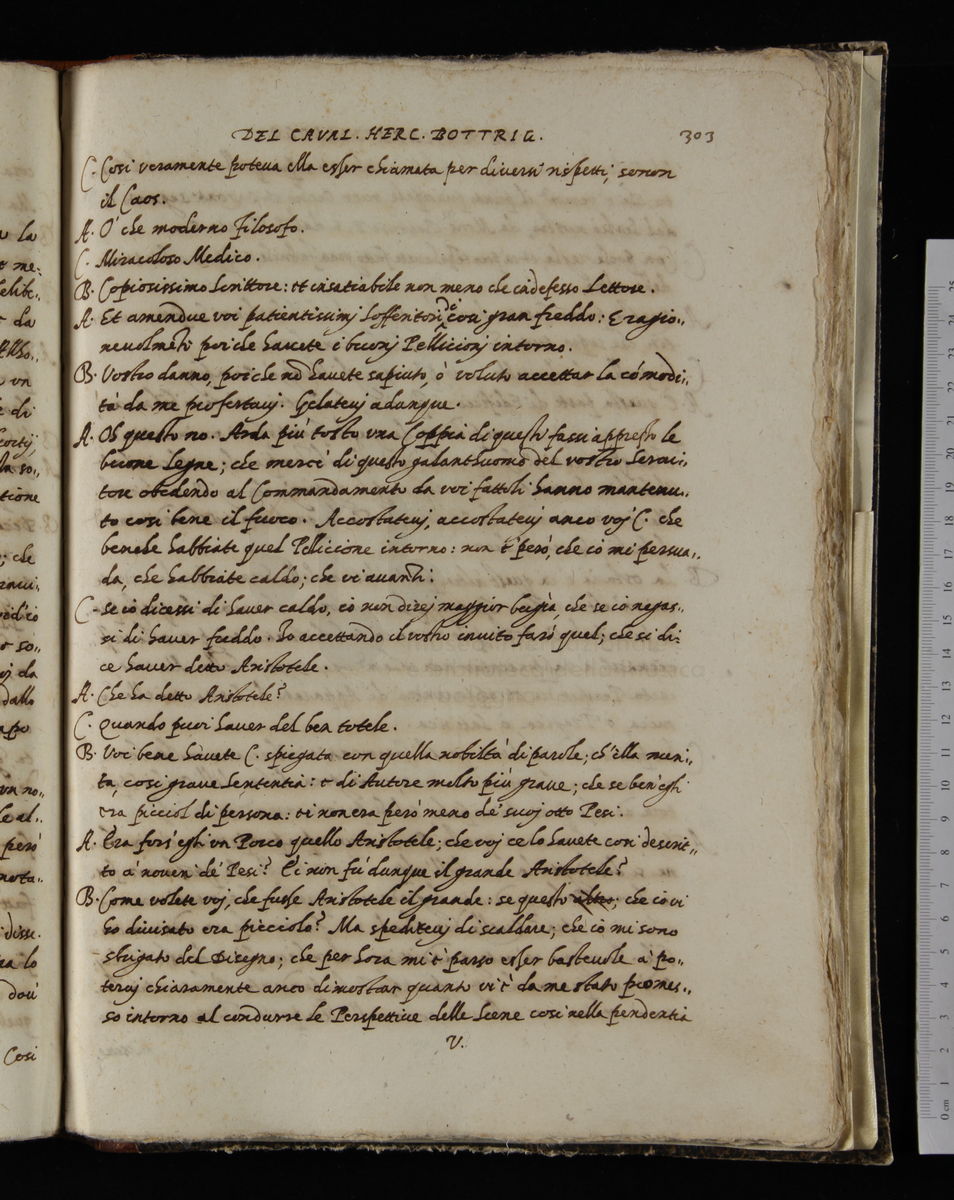 DEL CAVAL. HERC. BOTTRIG. 303
C. Così veramente poteua ella esser chiamata per diuersi rispetti, se non
il Caos.
A. O' che moderno Filosofo.
C. Miracoloso Medico.
B. Copiosissimo Scrittore: et insatiabile non meno che indefesso Lettore.
A. Et amendue voi patientissimj Sofferitori de così gran freddo: E ragio„
neuolmēti poiche hauete i buonj Pelliccionj intorno.
B. Vostro danno, poiche nō hauete saputo, ò voluto accettar la cōmodi„
tà da me profertauj. Gelateuj adunque.
A. Oh questo no. Arda più tosto vna Coppia di questi fassi appresso le
buone Legne; che mercè di questo galanthuomo del vostro Serui„
tore obedendo al Commandamento da voi fattoli hanno mantenu„
to così bene il fuoco. Accostateuj, accostateuj anco voj C. che
benche habbiate quel Pelliccione intorno: non è però, che io mi persua„
da, che habbiate caldo; che vi auanti.
C. Se io dicessi di hauer caldo, io non direj maggior bugia, che se io negas„
si di hauer freddo. Io accettando il vostro inuito farò quel; che si di„
ce hauer detto Aristotele.
A. Che ha detto Aristotele?
C. Quando puoi hauer del ben totele.
B. Voi bene hauete C. spiegata con quella nobiltà di parole; ch'ella meri„
ta, così graue Sententia: e di Autore molto più graue; che se ben'egli
era picciol di persona: ei non era però meno de' suoj otto Pesi.
A. Era fors'egli vn Porco quello Aristotele; che voj ce lo hauete così descrit„
to à nouero dè Pesi? Ei non fù dunque il grande Aristotele?
B. Come volete voj, che fusse Aristotele il grande: se questo altro; che io vi
hò diuisato era picciolo? Ma spediteuj di scaldare; che io mi sono
sbrigato del Disegno; che per hora mi è parso esser basteuole à po„
teruj chiaramente anco dimostrar quanto vi è da me stato promes„
so intorno al condurre le Perspettiue delle Scene così nella pendentia
V.